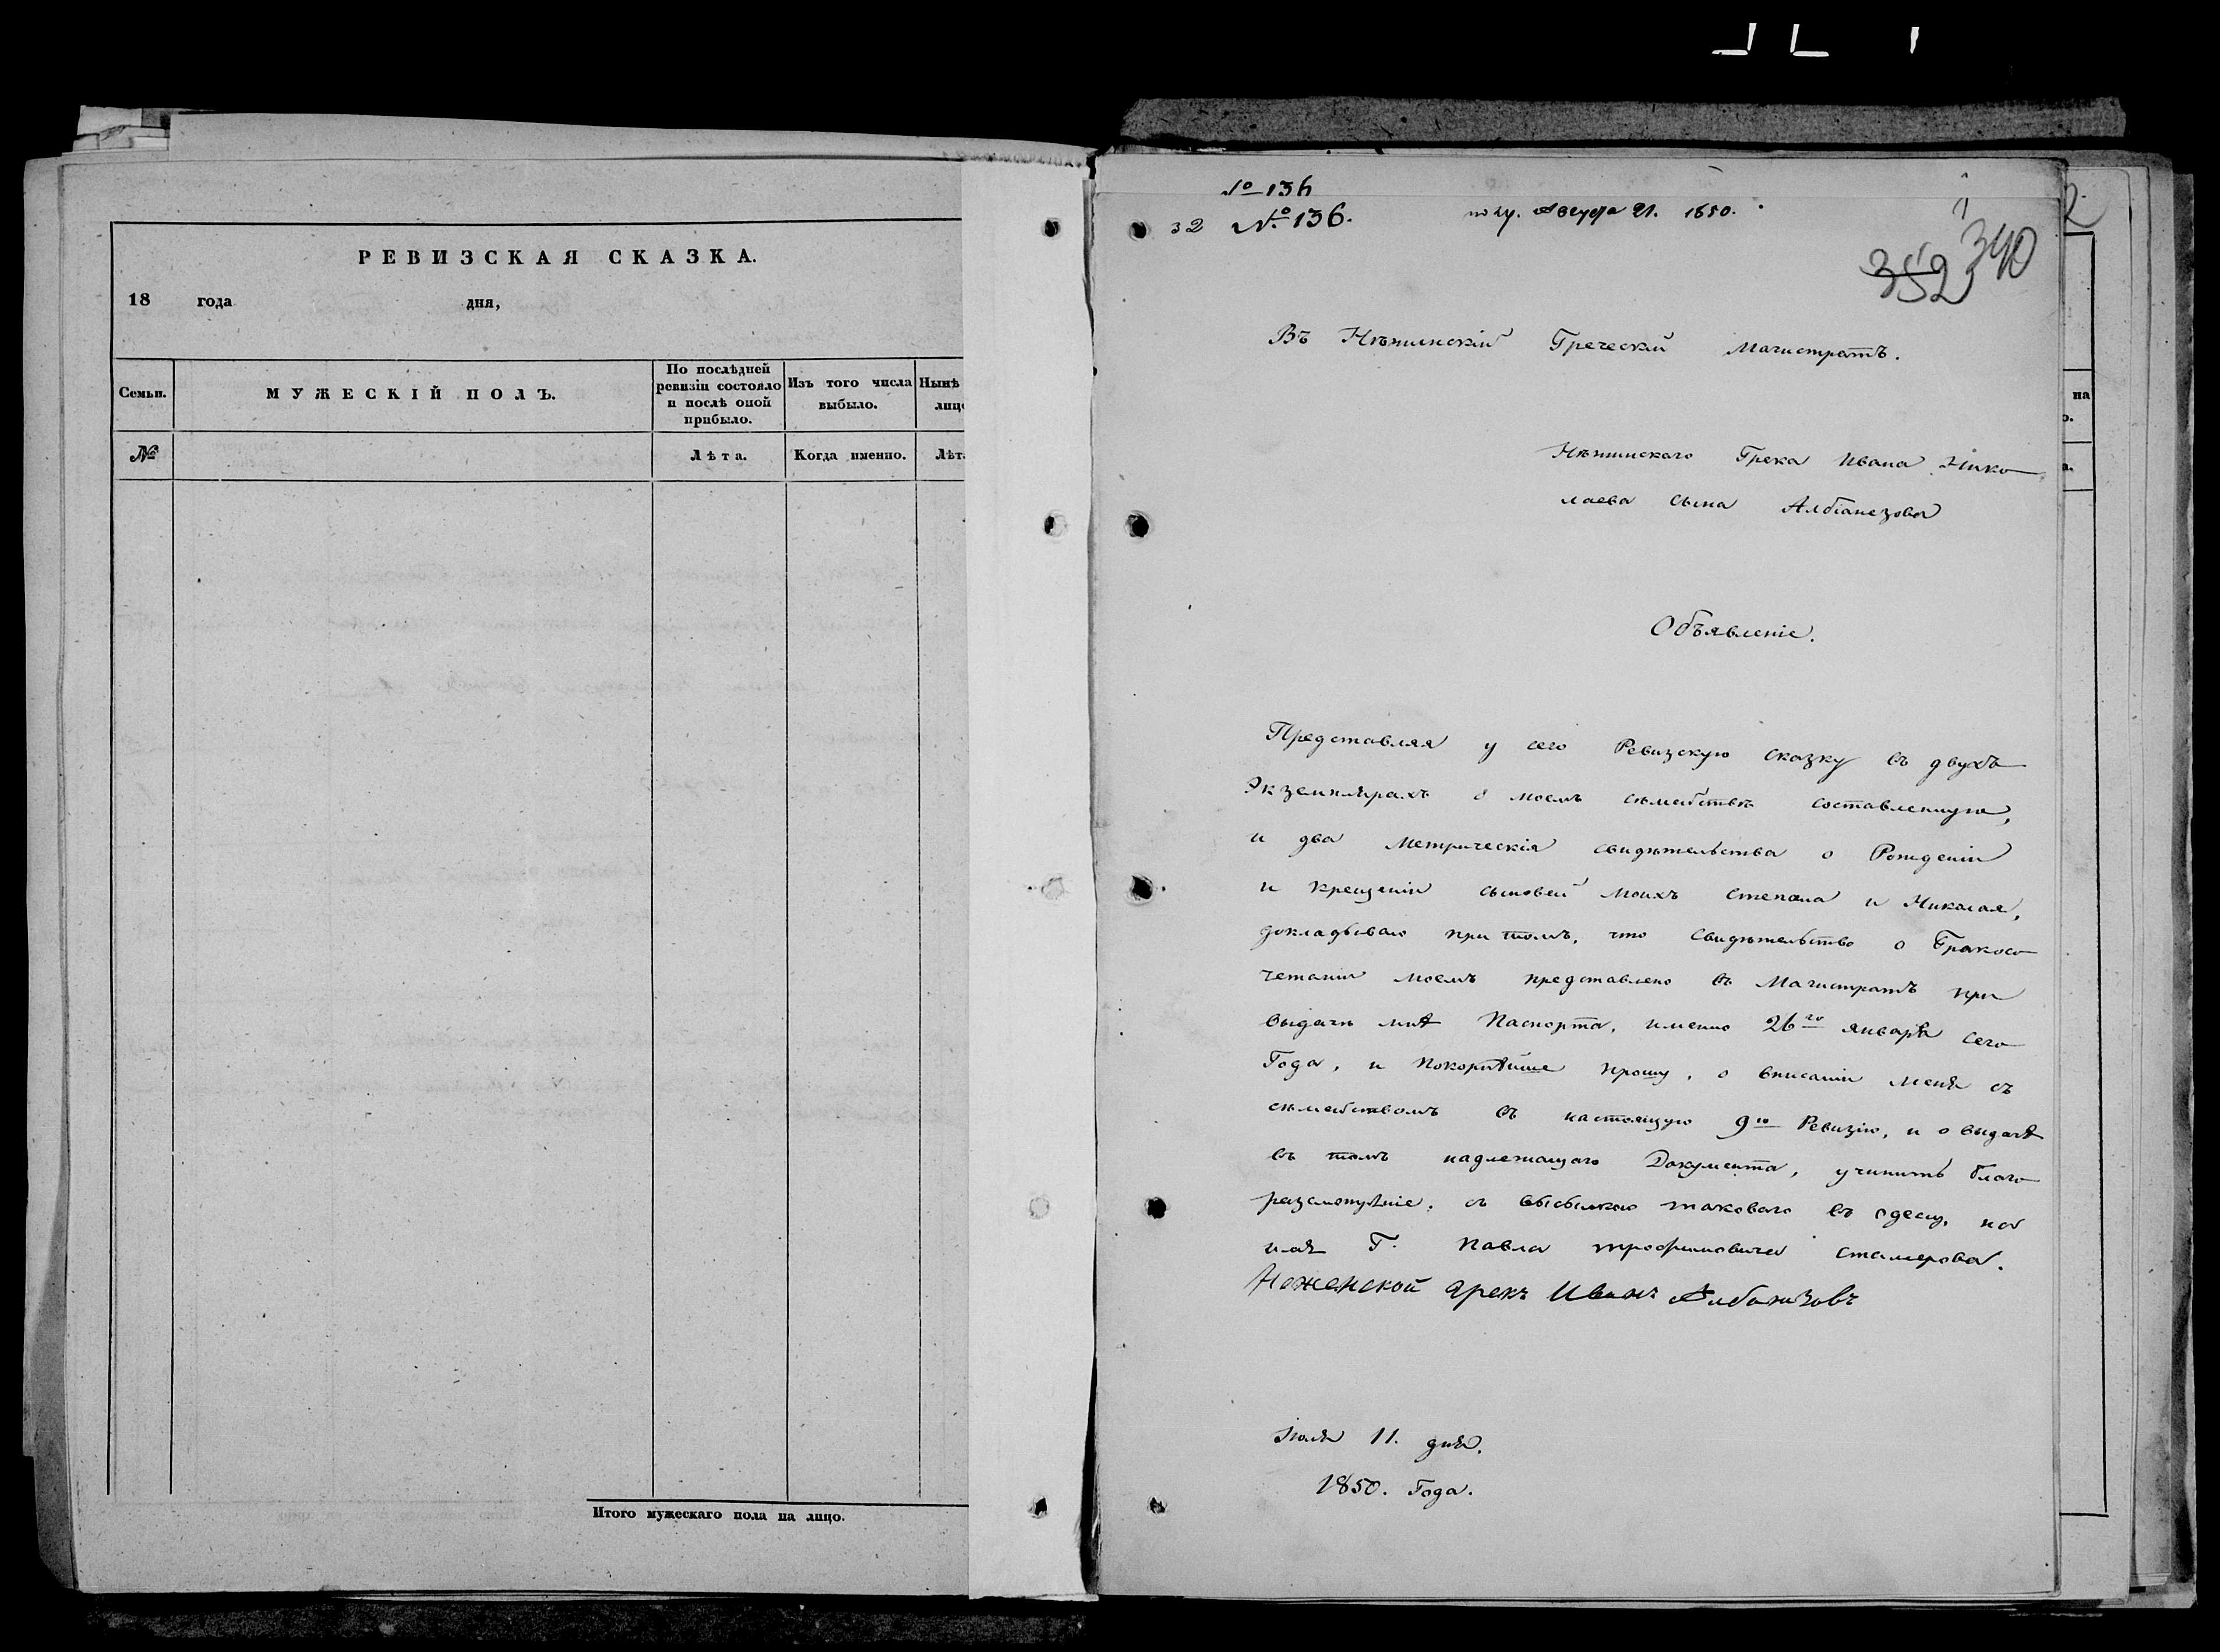 РЕВИЗСКАЯ СКАЗКА.
18 года дня,
Семьи.
МУЖЕСКІЙ ПОЛЪ.
По послѣдней
ревизіи состояло
и послѣ оной
прибыло.
Изъ того числа
выбыло.
Нынѣ
лицо
№
Лѣта.
Когда именно.
Лѣта
Итого мужескаго пола на лицо.
№ 136
32 №. 136.
полу. Августа 21. 1850.
1
352 340
Въ Нѣжинскій Греческій Магистратъ.
Нѣжинскаго Грека Ивана Нико
лаева сына Албіанезова
Объявленіе.
Представляя у сего Ревизскую сказку въ двухъ
Экземплярахъ о моемъ сѣмействѣ составленную,
и два Метрическія свидѣтельства о Рожденіи
и крещеніи сыновей моихъ Степана и Николая,
докладываю при томъ, что свидѣтельство о Бракосо
четаніи моемъ представлено въ Магистратъ при
выдачи мнѣ Паспорта, именно 26го января сего
Года, и покорнѣйше прошу, о вписаніи меня съ
сѣмействомъ въ настоящую 9ю Ревизію, и о выдачѣ
въ томъ надлежащаго Документа, учинить благо
разсмотрѣніе, съ высылкою таковаго въ Одессу, на
имя Г. Павла Трофимовича Стамерова.
Неженской грекъ Иванъ Албанизовъ
Іюля 11. дня.
1850. Года.
2
на
о.
а.